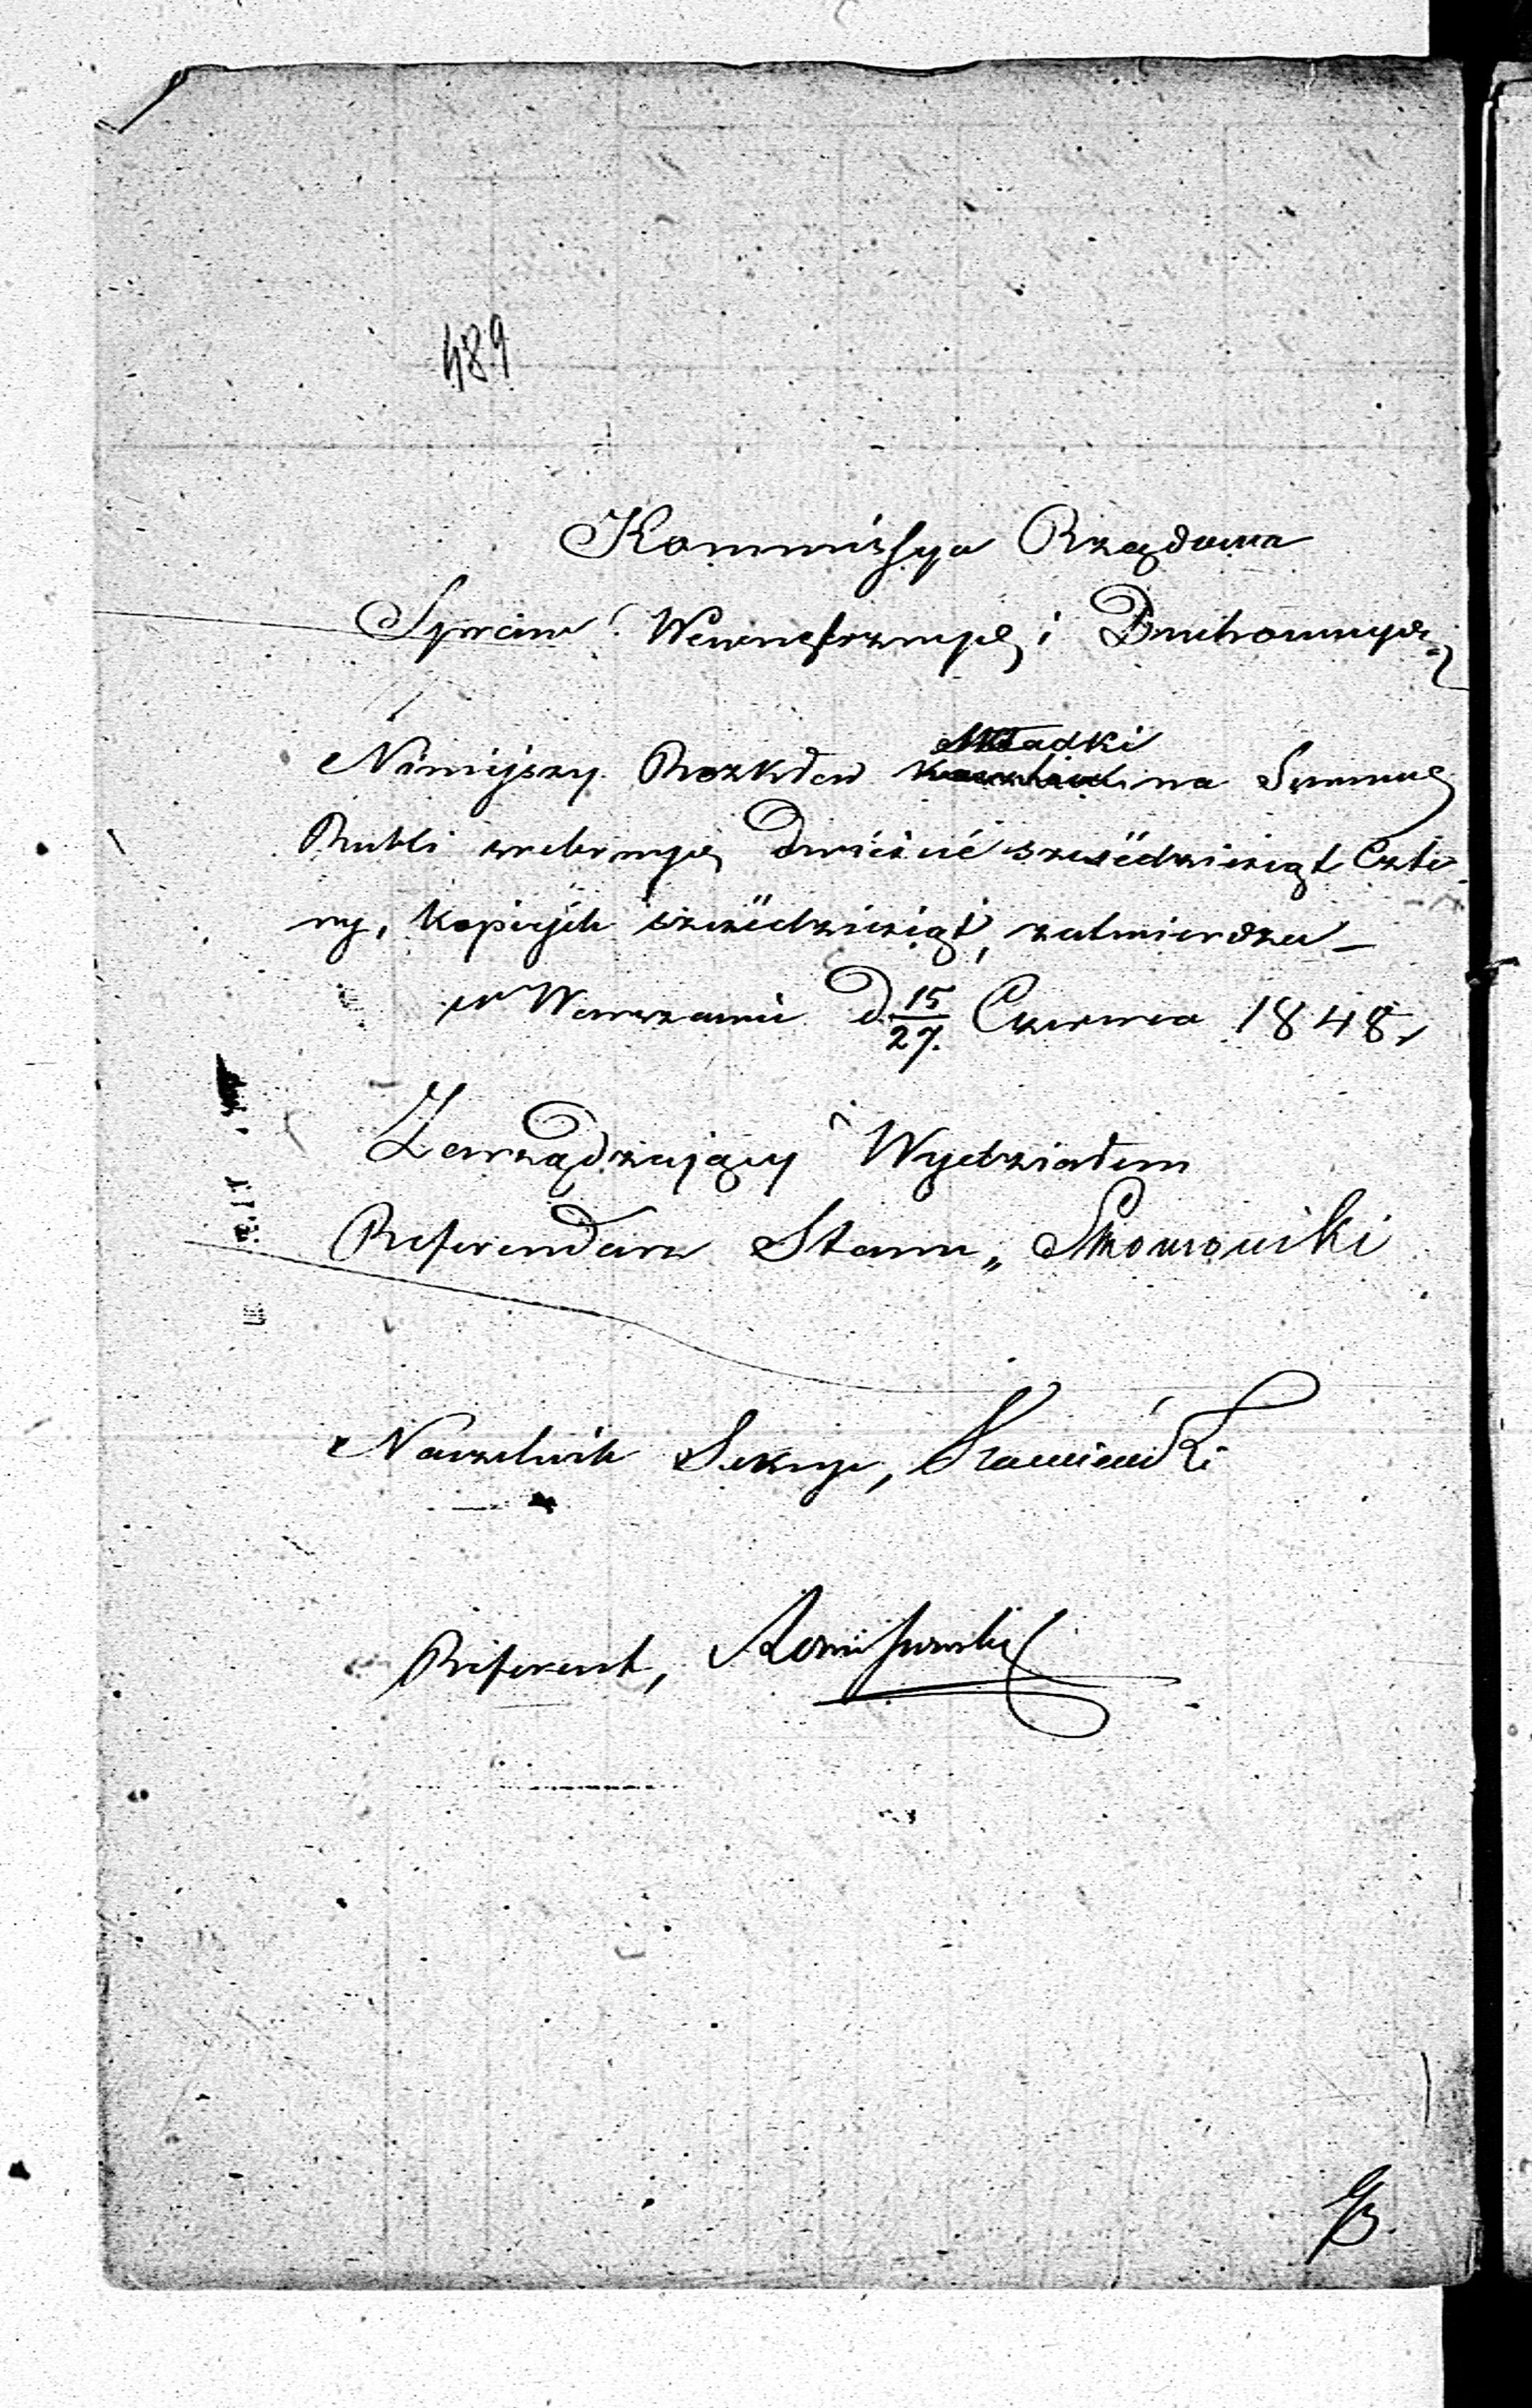 489
Kommissya Rządowa
Spraw Wewnętrznych i Duchownych
Niniejszy Rozkład Składki na Summę
Rubli srebrnych Dwieście sześćdziesiąt Czte
ry, kopiejek sześćdziesiąt, zatwierdza _
w Warszawie D. 15/27. Czerwca 1848 r
Zarządzający Wydziałem
Referendarz Stanu „
Naczelnik Sekcyi, Kamieński
Referent,